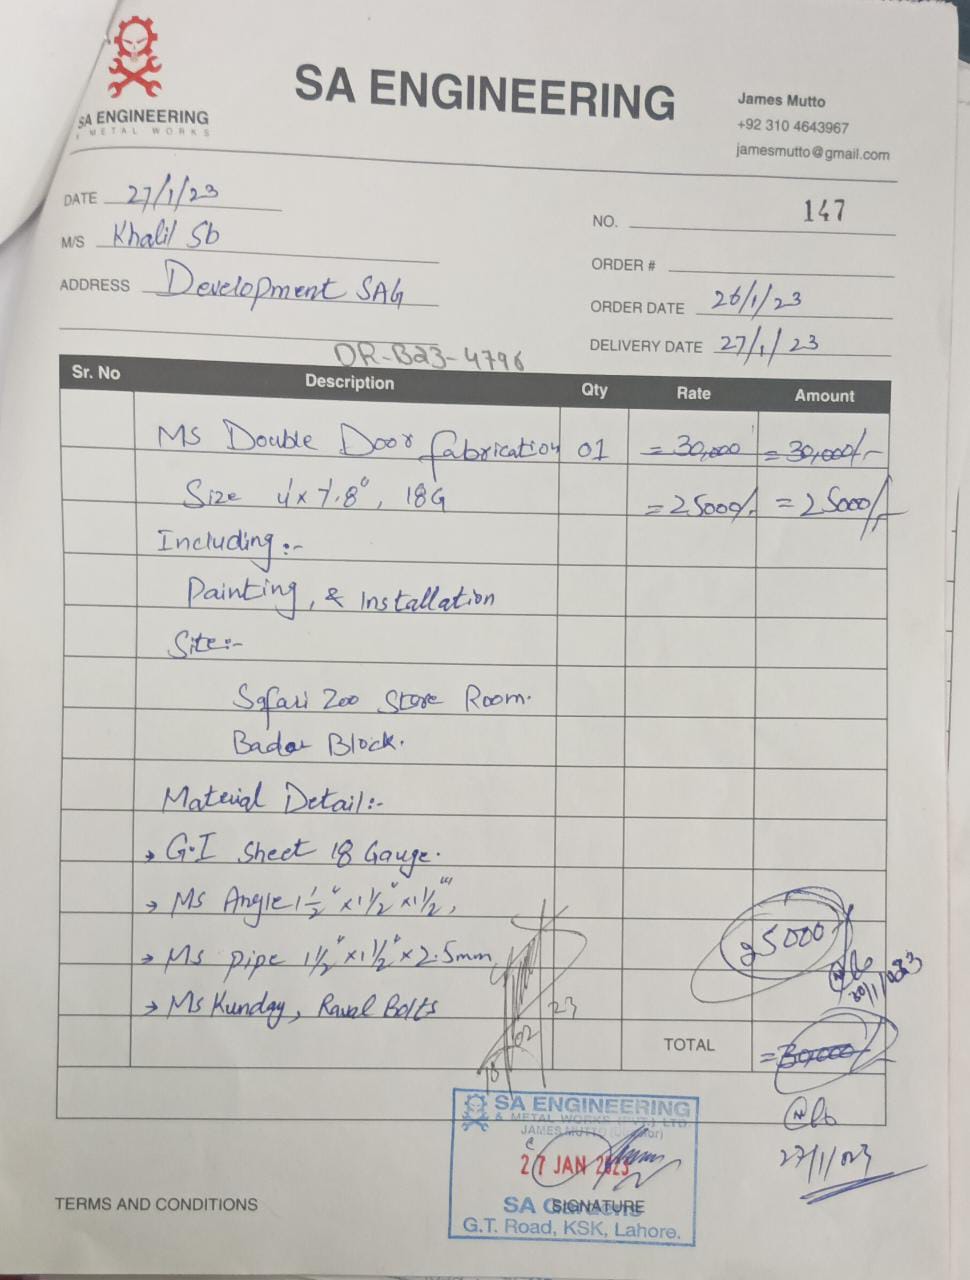 SA ENGINEERING
& METAL WORKS
SA ENGINEERING
James Mutto
+92 310 4643967
jamesmutto@gmail.com
DATE 27/1/23
M/S Khalil Sb
ADDRESS Development SAG
NO. 147
ORDER #
ORDER DATE 26/1/23
DELIVERY DATE 27/1/23
DR-B23-4796
Sr. No Description Qty Rate Amount
MS Double Door fabrication 01 =30,000 =30,000/-
Size 4'x7'.8", 18G =25000/- =25000/-
Including:-
Painting, & Installation
Site:-
Safari Zoo Store Room.
Badar Block.
Material Detail:-
→ G.I Sheet 18 Gauge.
→ Ms Angle 1 1/2" x 1 1/2" x 1 1/2"',
→ Ms pipe 1 1/2" x 1 1/2" x 2.5mm
→ Ms Kunday, Raval Bolts
25000
30/1/2023
18 02 23
TOTAL =30,000
27/1/023
SA ENGINEERING
& METAL WORKS (PVT.) LTD.
JAMES MUTTO (Director)
27 JAN 2023
SA Gardens
G.T. Road, KSK, Lahore.
TERMS AND CONDITIONS
SIGNATURE